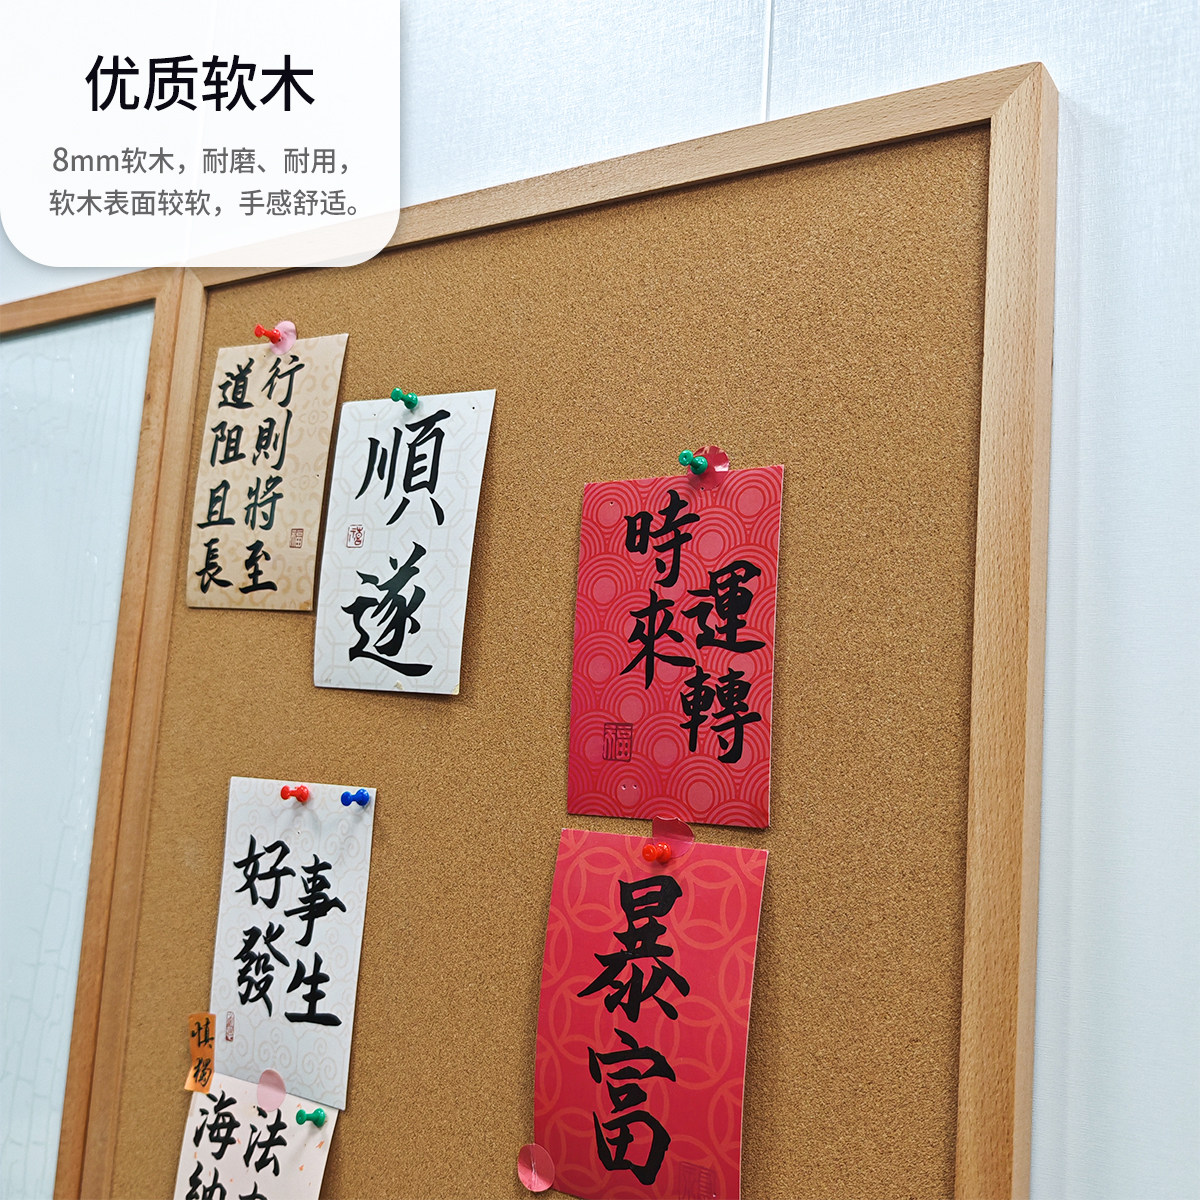 优质软木
8mm软木，耐磨、耐用，
软木表面较软，手感舒适。
行則將至
道阻且長
福
順遂
時來
運轉
福
好發
事生
慎獨
暴富
法
海納